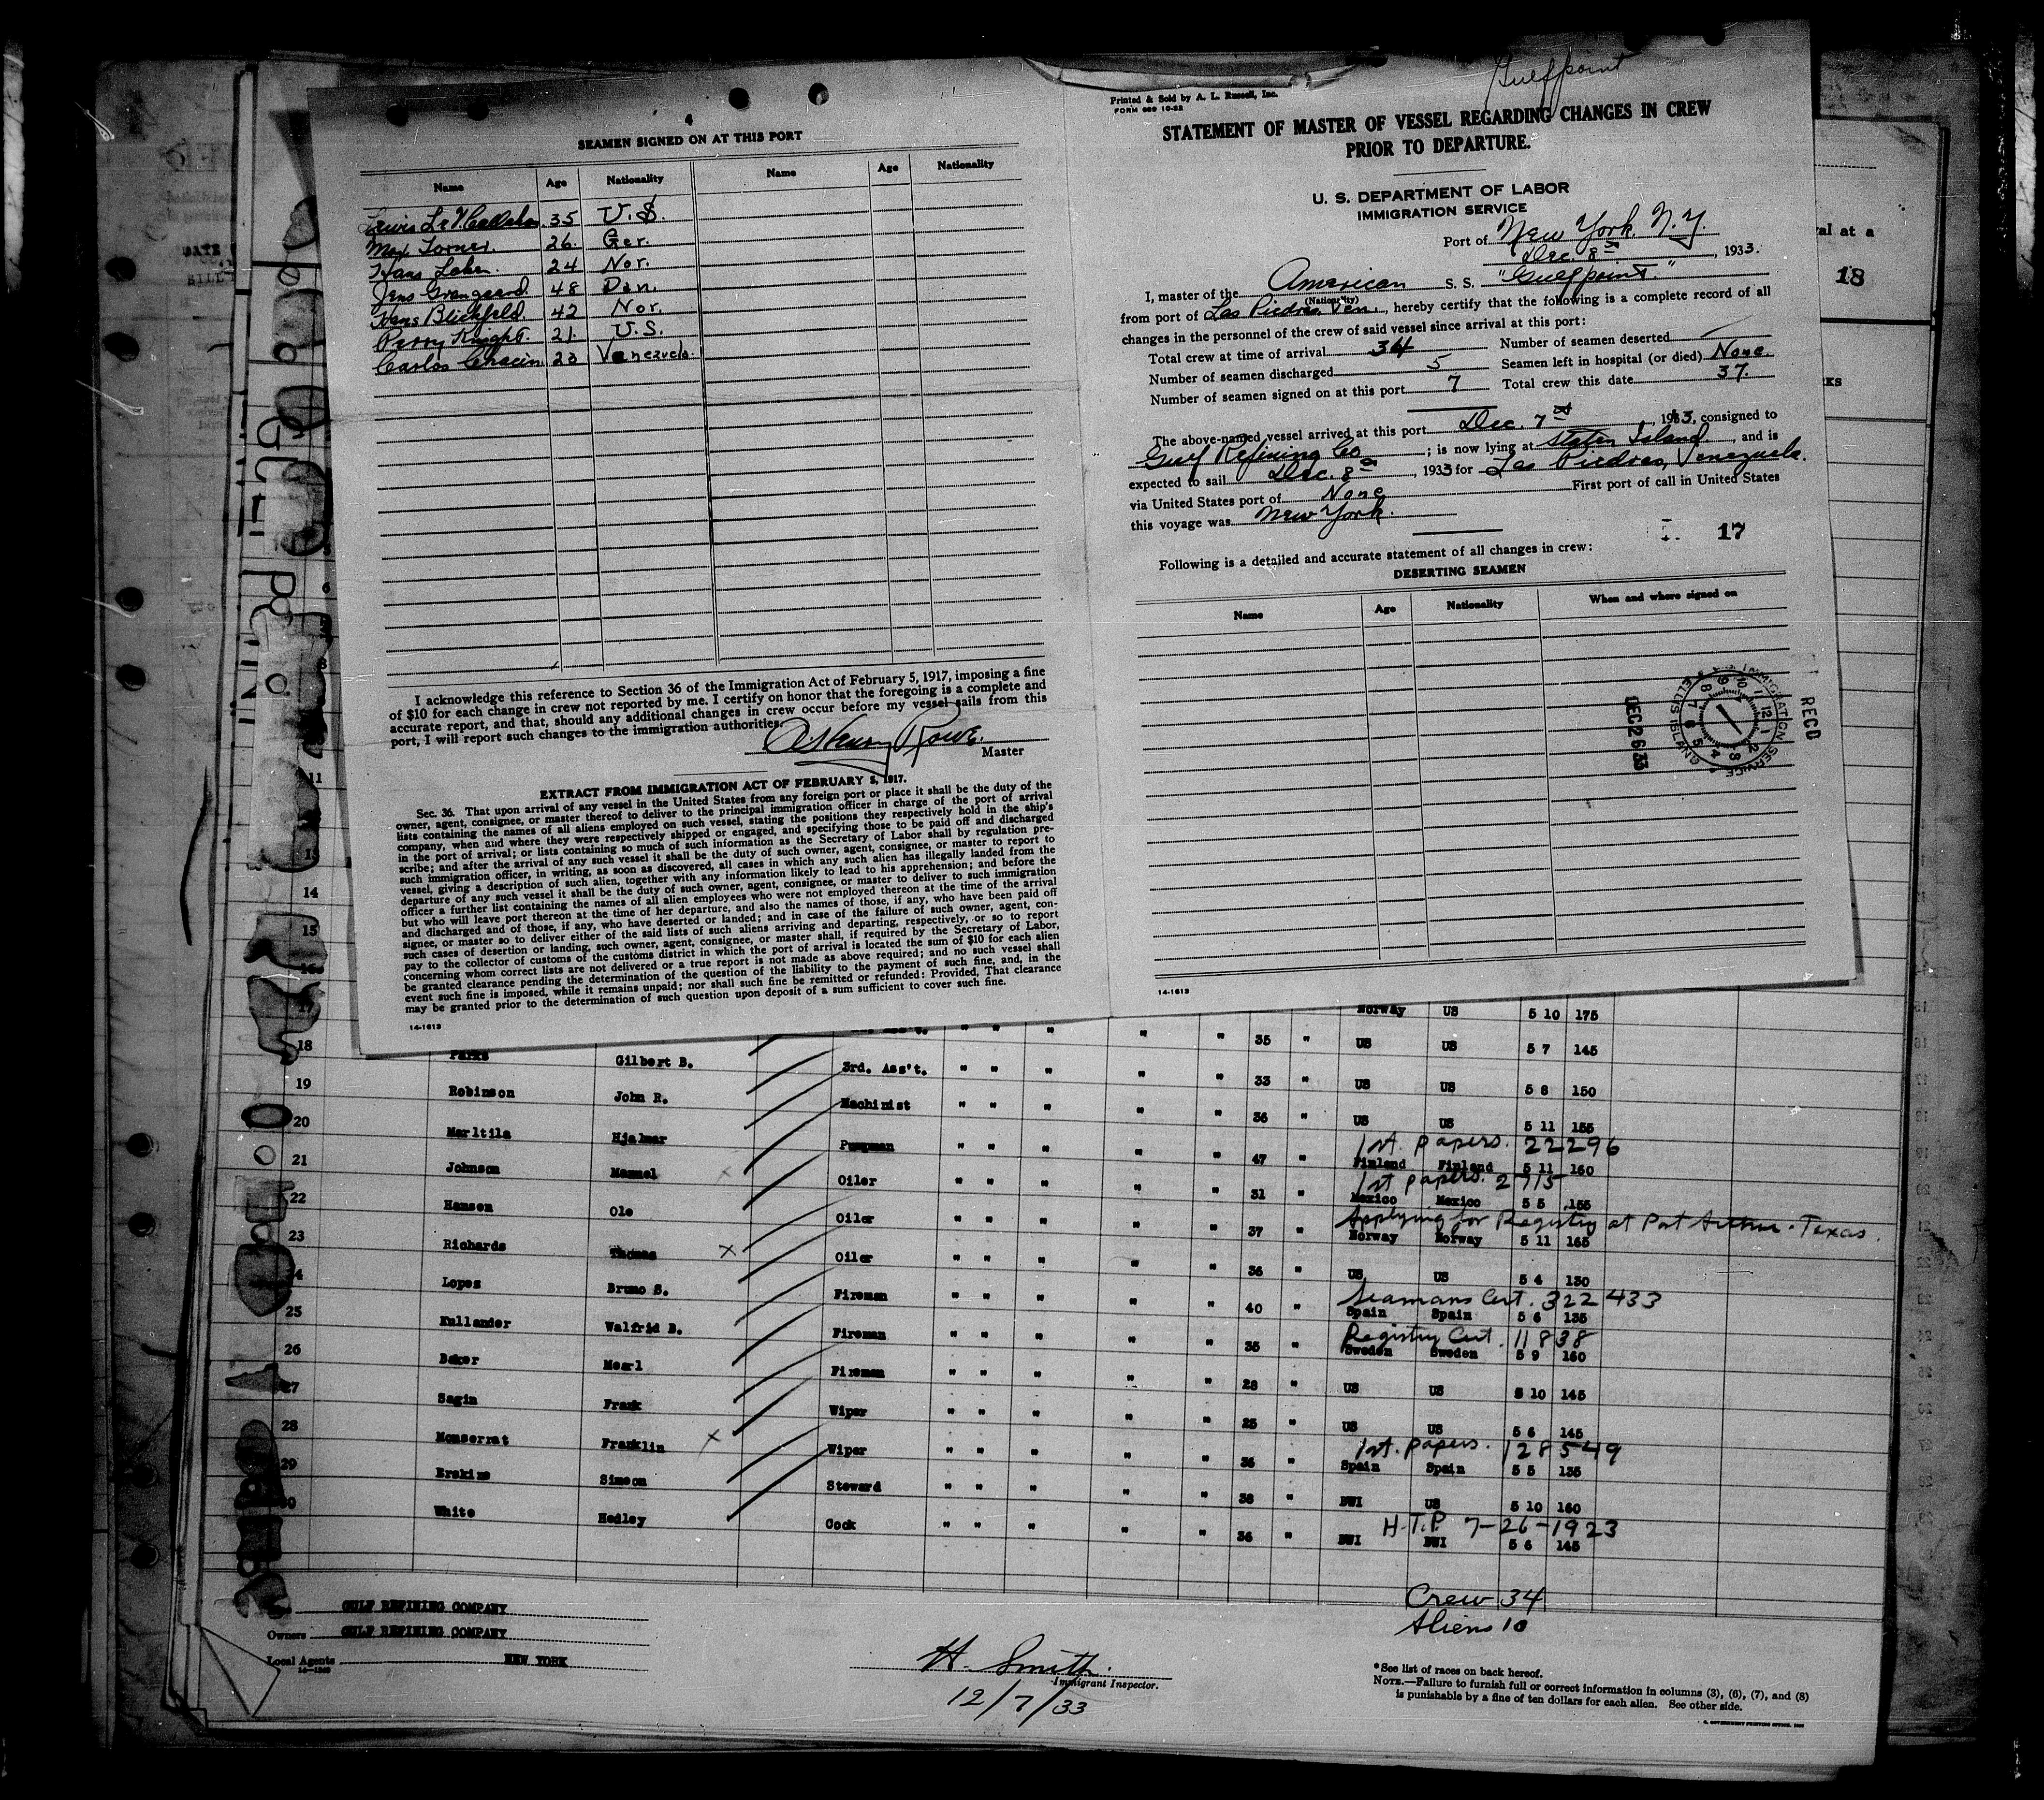 Gulfpoint
4
SEAMEN SIGNED ON AT THIS PORT
Name Age Nationality Name Age Nationality
Lewis 35 U.S.
Max Torner. 26. Ger.
Hans Loken. 24 Nor.
Jens 48 Dan.
Hans Blickfeld. 42 Nor.
Perry Knight. 21. U.S.
Carlos Chacin. 23 Venezuela.
I acknowledge this reference to Section 36 of the Immigration Act of February 5, 1917, imposing a fine
of $10 for each change in crew not reported by me. I certify on honor that the foregoing is a complete and
accurate report, and that, should any additional changes in crew occur before my vessel sails from this
port, I will report such changes to the immigration authorities.
Henry Rowe.
Master
EXTRACT FROM IMMIGRATION ACT OF FEBRUARY 5, 1917.
Sec. 36. That upon arrival of any vessel in the United States from any foreign port or place it shall be the duty of the
owner, agent, consignee, or master thereof to deliver to the principal immigration officer in charge of the port of arrival
lists containing the names of all aliens employed on such vessel, stating the positions they respectively hold in the ship's
company, when and where they were respectively shipped or engaged, and specifying those to be paid off and discharged
in the port of arrival; or lists containing so much of such information as the Secretary of Labor shall by regulation pre-
scribe; and after the arrival of any such vessel it shall be the duty of such owner, agent, consignee, or master to report to
such immigration officer, in writing, as soon as discovered, all cases in which any such alien has illegally landed from the
vessel, giving a description of such alien, together with any information likely to lead to his apprehension; and before the
departure of any such vessel it shall be the duty of such owner, agent, consignee, or master to deliver to such immigration
officer a further list containing the names of all alien employees who were not employed thereon at the time of the arrival
but who will leave port thereon at the time of her departure, and also the names of those, if any, who have been paid off
and discharged and of those, if any, who have deserted or landed; and in case of the failure of such owner, agent, con-
signee, or master so to deliver either of the said lists of such aliens arriving and departing, respectively, or so to report
such cases of desertion or landing, such owner, agent, consignee, or master shall, if required by the Secretary of Labor,
pay to the collector of customs of the customs district in which the port of arrival is located the sum of $10 for each alien
concerning whom correct lists are not delivered or a true report is not made as above required; and no such vessel shall
be granted clearance pending the determination of the question of the liability to the payment of such fine, and, in the
event such fine is imposed, while it remains unpaid; nor shall such fine be remitted or refunded: Provided, That clearance
may be granted prior to the determination of such question upon deposit of a sum sufficient to cover such fine.
14-1613
Printed & Sold by A. L. Russell, Inc.
STATEMENT OF MASTER OF VESSEL REGARDING CHANGES IN CREW
PRIOR TO DEPARTURE.
U. S. DEPARTMENT OF LABOR
IMMIGRATION SERVICE
Port of New York. N.Y.
Dec. 8th, 1933.
I, master of the American S. S. "Gulfpoint."
(Nationality)
from port of Las Piedras, Ven., hereby certify that the following is a complete record of all
changes in the personnel of the crew of said vessel since arrival at this port:
Total crew at time of arrival 34 Number of seamen deserted
Number of seamen discharged 5 Seamen left in hospital (or died) None.
Number of seamen signed on at this port 7 Total crew this date 37.
The above-named vessel arrived at this port Dec. 7th, 1933, consigned to
Gulf Refining Co; is now lying at Staten Island, and is
expected to sail Dec. 8th, 1933 for Las Piedras, Venezuela.
via United States port of None First port of call in United States
this voyage was New York.
17
Following is a detailed and accurate statement of all changes in crew:
DESERTING SEAMEN
Name Age Nationality When and where signed on
RECD
U.S. IMMIGRATION SERVICE ELLIS ISLAND
DEC 26 33
14-1613
val at a
18
KS
GULFPOINT
Norway US 5 10 175
" " " " " 35 " US US 5 7 145
18 Parks Gilbert B. 3rd. Ass't. " " " " " 33 " US US 5 8 150
19 Robinson John R. Machinist " " " " " 36 " US US 5 11 155
1st. papers. 22296
20 Marltila Hjalmar Pumpman " " " " " 47 " Finland Finland 5 11 160
1st papers. 2715
21 Johnson Manuel Oiler " " " " " 31 " Mexico Mexico 5 5 155
Applying for Registry at Port Arthur. Texas.
22 Hansen Ole Oiler " " " " " 37 " Norway Norway 5 11 165
23 Richards Thomas X Oiler " " " " " 36 " US US 5 4 130
Seamans Cert. 322433
24 Lopes Bruno S. Fireman " " " " " 40 " Spain Spain 5 6 135
Registry Cert. 11838
25 Kullander Walfrid B. Fireman " " " " " 35 " Sweden Sweden 5 9 160
26 Baker Mearl Fireman " " " " " 28 " US US 5 10 145
27 Sagin Frank Wiper " " " " " 25 " US US 5 6 145
1st. papers. 128549
28 Monserrat Franklin X Wiper " " " " " 36 " Spain Spain 5 5 135
29 Erskine Simeon Steward " " " " " 38 " BWI US 5 10 160
H.T.P. 7-26-1923
30 White Hedley Cook " " " " " 36 " BWI BWI 5 6 145
Crew 34
Aliens 10
GULF REFINING COMPANY
Owners GULF REFINING COMPANY
Local Agents NEW YORK
H. Smith.
Immigrant Inspector.
12/7/33
*See list of races on back hereof.
NOTE.—Failure to furnish full or correct information in columns (3), (6), (7), and (8)
is punishable by a fine of ten dollars for each alien. See other side.